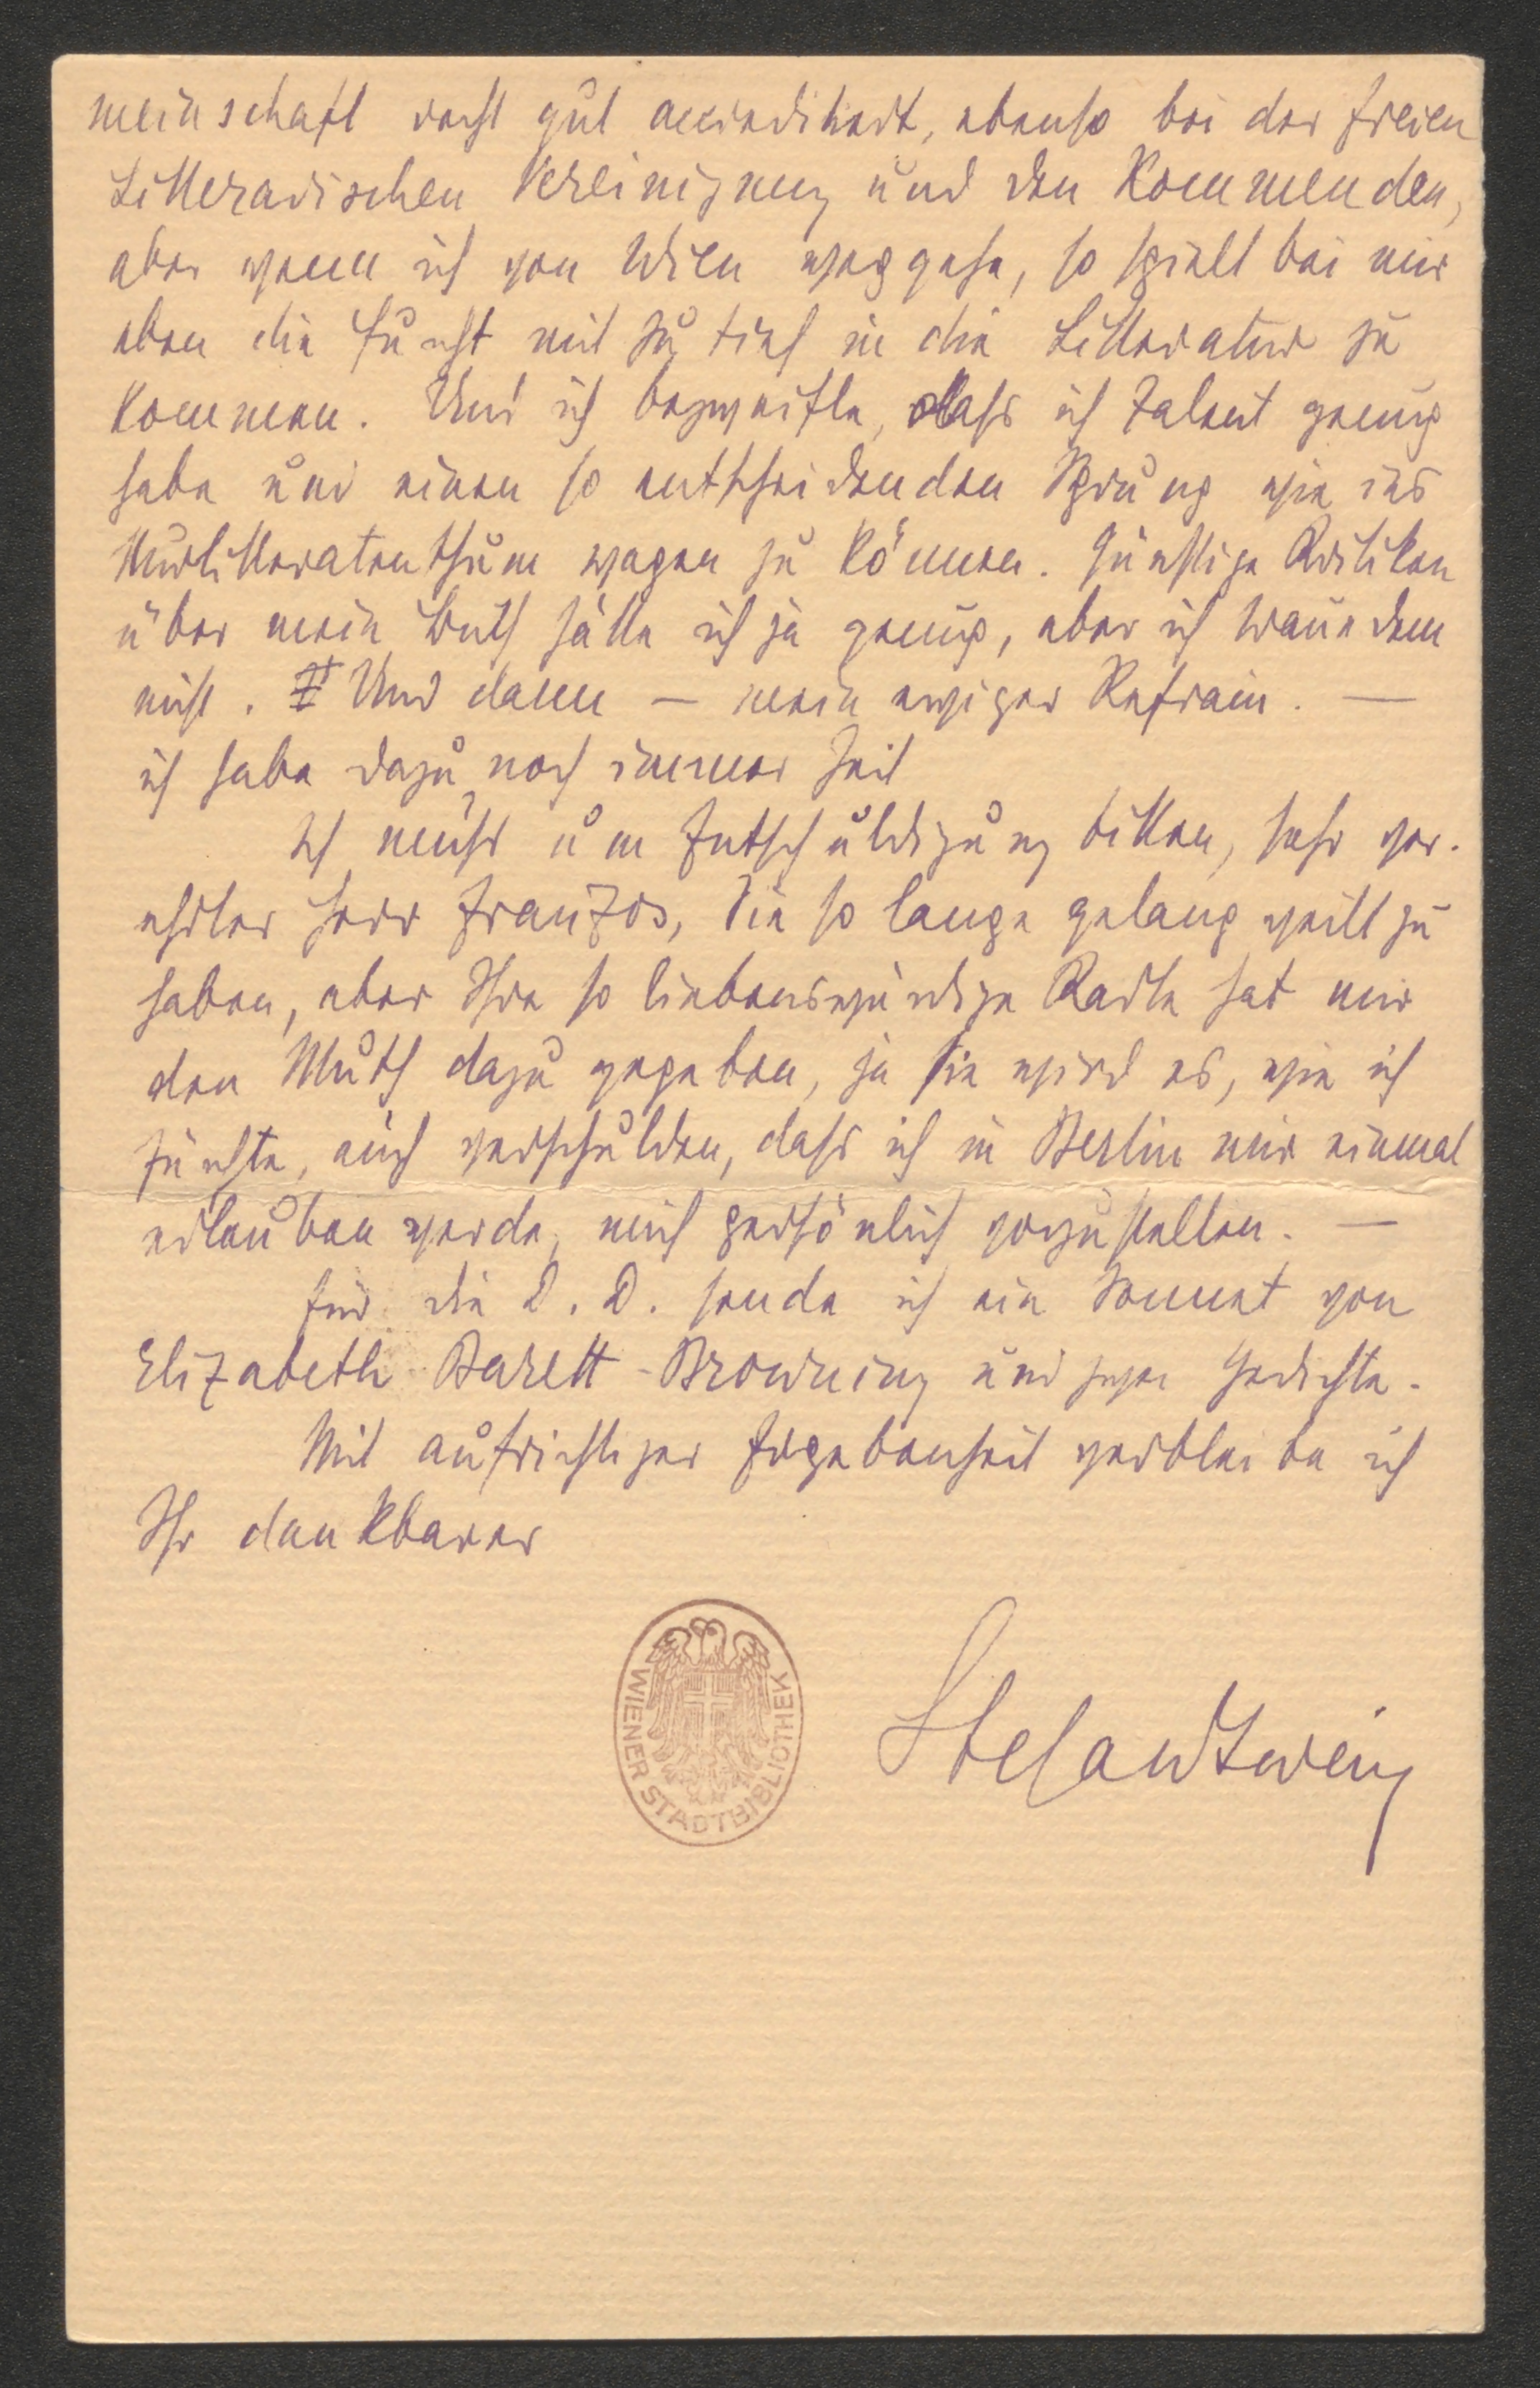 meinschaft recht gut accreditiert, ebenso bei der freien
Litterarischen Vereinigung und den Kommenden,
aber wenn ich von Wien weggehe, so spielt bei mir
eben die Furcht mit zu tief in die Litteratur zu
kommen. Und ich bezweifle, dass ich Talent genug
habe um einen so entscheidenden Sprung wie ins
Nurlitteratenthum wagen zu können. Günstige Kritiken
über mein Buch hätte ich ja genug, aber ich traue dem
nicht. Und dann – mein ewiger Refrain. –
ich habe dazu noch immer Zeit
Ich muss um Entschuldigung bitten, sehr ver-
ehrter Herr Franzos, Sie so lange gelangweilt zu
haben, aber Ihre so liebenswürdige Karte hat mir
den Muth dazu gegeben, ja sie wird es, wie ich
fürchte, auch verschulden, dass ich in Berlin mir einmal
erlauben werde, mich persönlich vorzustellen. –
Für die D. D. sende ich ein Sonnet von
Elizabeth Barett-Browning und zwei Gedichte.
Mit aufrichtiger Ergebenheit verbleibe ich
Ihr dankbarer
Stefan Zweig
WIENER STADTBIBLIOTHEK